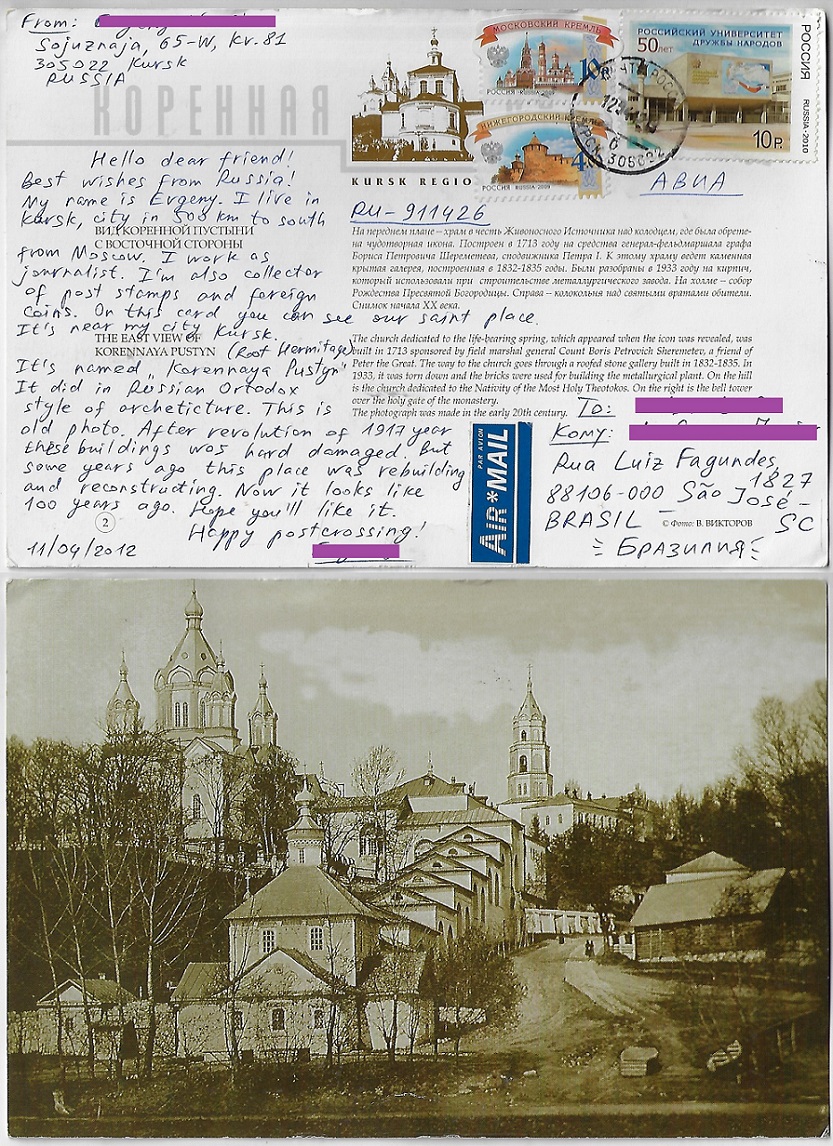 From:
Sojuznaja, 65-W, kv. 81
305022 Kursk
RUSSIA
КОРЕННАЯ
KURSK REGIO
МОСКОВСКИЙ КРЕМЛЬ
10
РОССИЯ · RUSSIA · 2009
НИЖЕГОРОДСКИЙ КРЕМЛЬ
4
РОССИЯ RUSSIA · 2009
РОССИЙСКИЙ УНИВЕРСИТЕТ
ДРУЖБЫ НАРОДОВ
50лет
10 Р.
РОССИЯ
RUSSIA · 2010
305022
АВИА
RU-911426
Hello dear friend!
Best wishes from Russia!
My name is Evgeny. I live in
Kursk, city in 500 km to south
from Moscow. I work as
journalist. I'm also collector
of post stamps and foreign
coins. On this card you can see our saint place.
It's near my city Kursk.
It's named „Korennaya Pustyn" (Root Hermitage)
It did in Russian Ortodox
style of archeticture. This is
old photo. After revolution of 1917 year
these buildings was hard damaged. But
some years ago this place was rebuilding
and reconstructing. Now it looks like
100 years ago. Hope you'll like it.
Happy postcrossing!
11/04/2012
2
ВИД КОРЕННОЙ ПУСТЫНИ
С ВОСТОЧНОЙ СТОРОНЫ
THE EAST VIEW OF
KORENNAYA PUSTYN
На перднем плане – храм в честь Живоносного Источника над колодцем, где была обрете-
на чудотворная икона. Построен в 1713 году на средства генерал-фельдмаршала графа
Бориса Петровича Шереметева, сподвижника Петра I. К этому храму ведет каменная
крытая галерея, построенная в 1832-1835 годы. Были разобраны в 1933 году на кирпич,
который использовали при строительстве металлургического завода. На холме – собор
Рождества Пресвятой Богородицы. Справа – колокольня над святыми вратами обители.
Снимок начала XX века.
The church dedicated to the life-bearing spring, which appeared when the icon was revealed, was
built in 1713 sponsored by field marshal general Count Boris Petrovich Sheremetev, a friend of
Peter the Great. The way to the church goes through a roofed stone gallery built in 1832-1835. In
1933, it was torn down and the bricks were used for building the metallurgical plant. On the hill
is the church dedicated to the Nativity of the Most Holy Theotokos. On the right is the bell tower
over the holy gate of the monastery.
The photograph was made in the early 20th century.
To:
Кому:
Rua Luiz Fagundes,
1827
88106-000 São José-
SC
BRASIL –
Бразилия
© Фото: В. ВИКТОРОВ
PAR AVION
AIR*MAIL